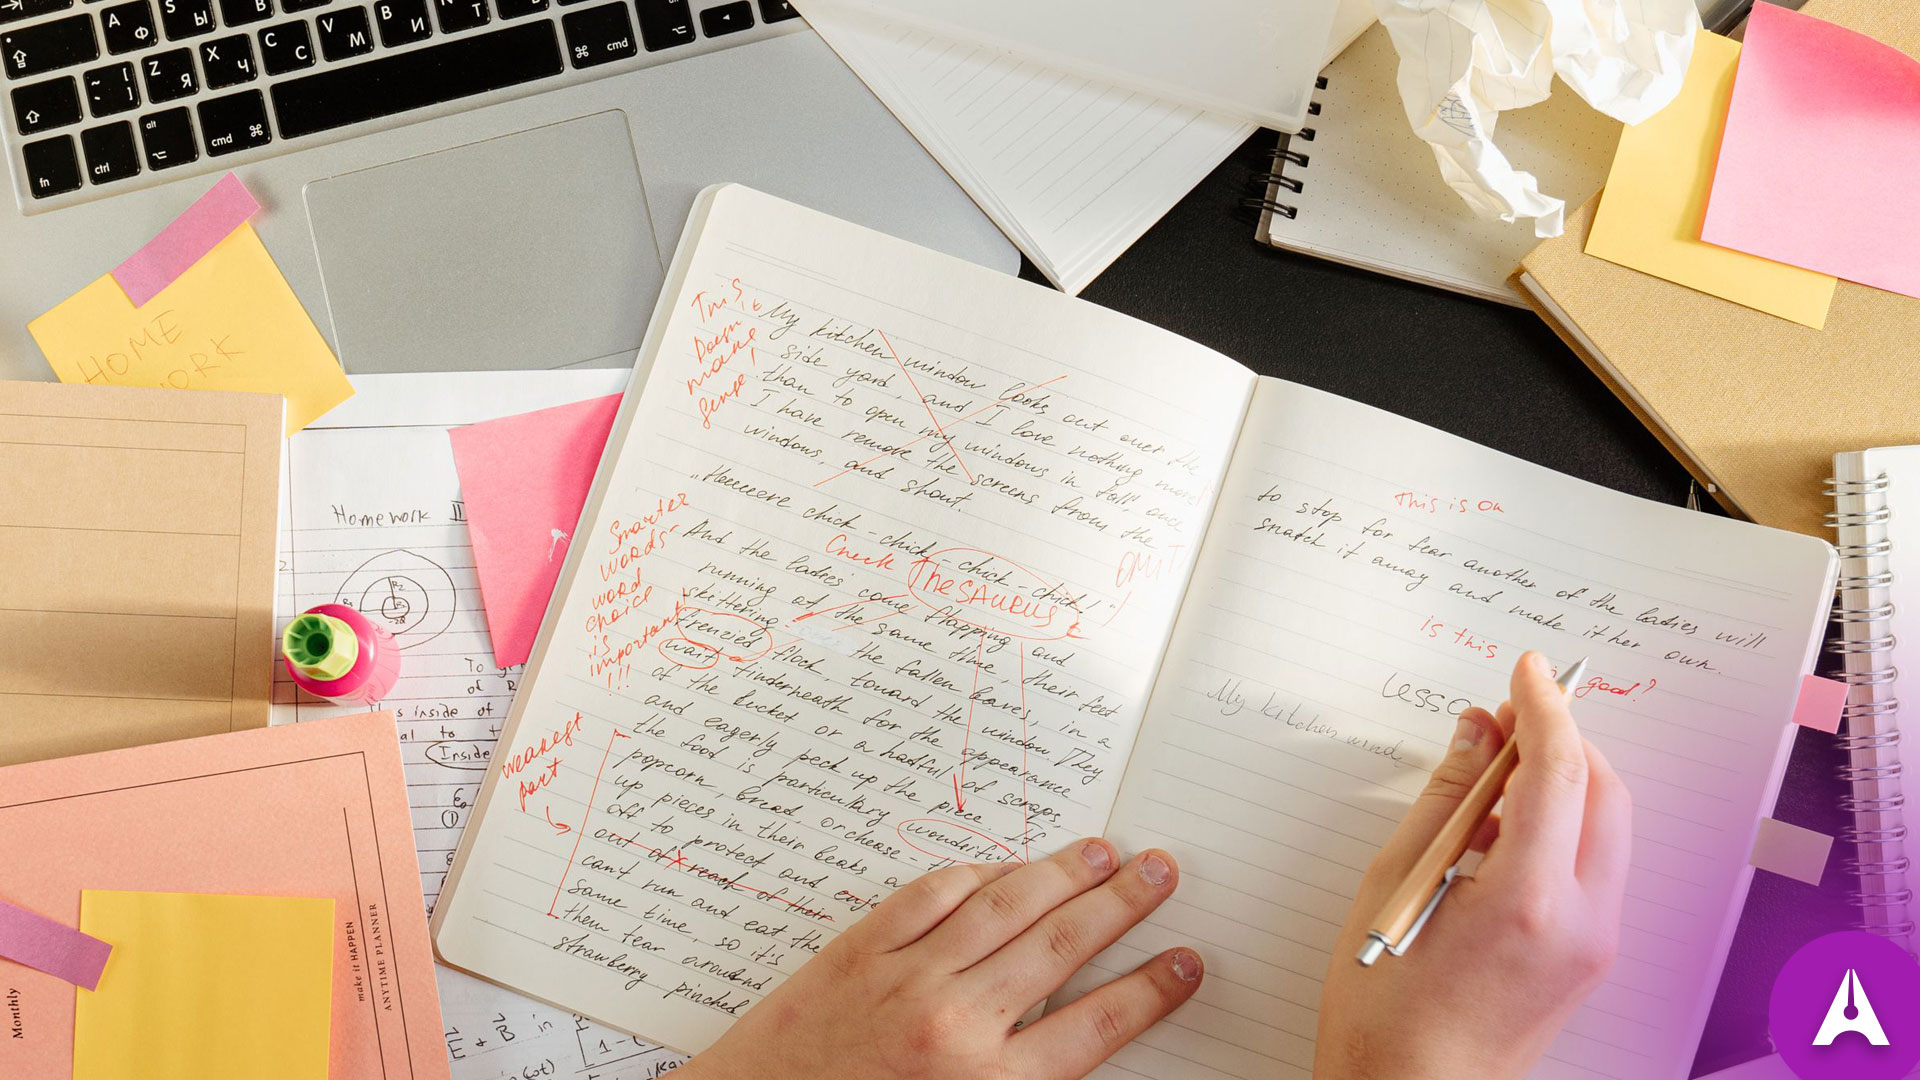 A Ф
S Ы
B
Z Я
X Ч
C С
V М
B И
N Т
cmd
fn
ctrl
alt
cmd
HOME
WORK
Homework II
R₂
To
of R
s inside of
al to
Inside
make it HAPPEN
ANYTIME PLANNER
Monthly
This
Doesn
make
sense!
My kitchen window looks out over the
side yard, and I love nothing more
than to open my windows in fall, once
I have remove the screens from the
windows, and shout.
OMIT
chick-chick-chick-chick!"
Check Thesaurus
Smarter
words-
word
choice
is
important
!!!
And the ladies come flapping and
running at the same time, their feet
skettering the fallen leaves, in a
frenzied flock, toward the window. They
wait tinderneath for the appearance
of the bucket or a hadful of scraps,
and eagerly peck up the piece. If
the food is particullary wonderful
popcorn, bread, or cheese -
up pieces in their beaks a
off to protect and enjo
out of reach of their
can't run and eat the
same time, so it's
them tear around
strawberry pinched
weakest
part
This is ok
to stop for fear another of the ladies will
snatch it away and make it her own.
is this good?
Lesso
My kitchen wind